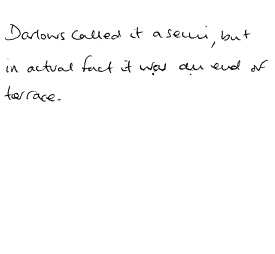 Darlows called it a semi, but
in actual fact it was an end of
terrace.